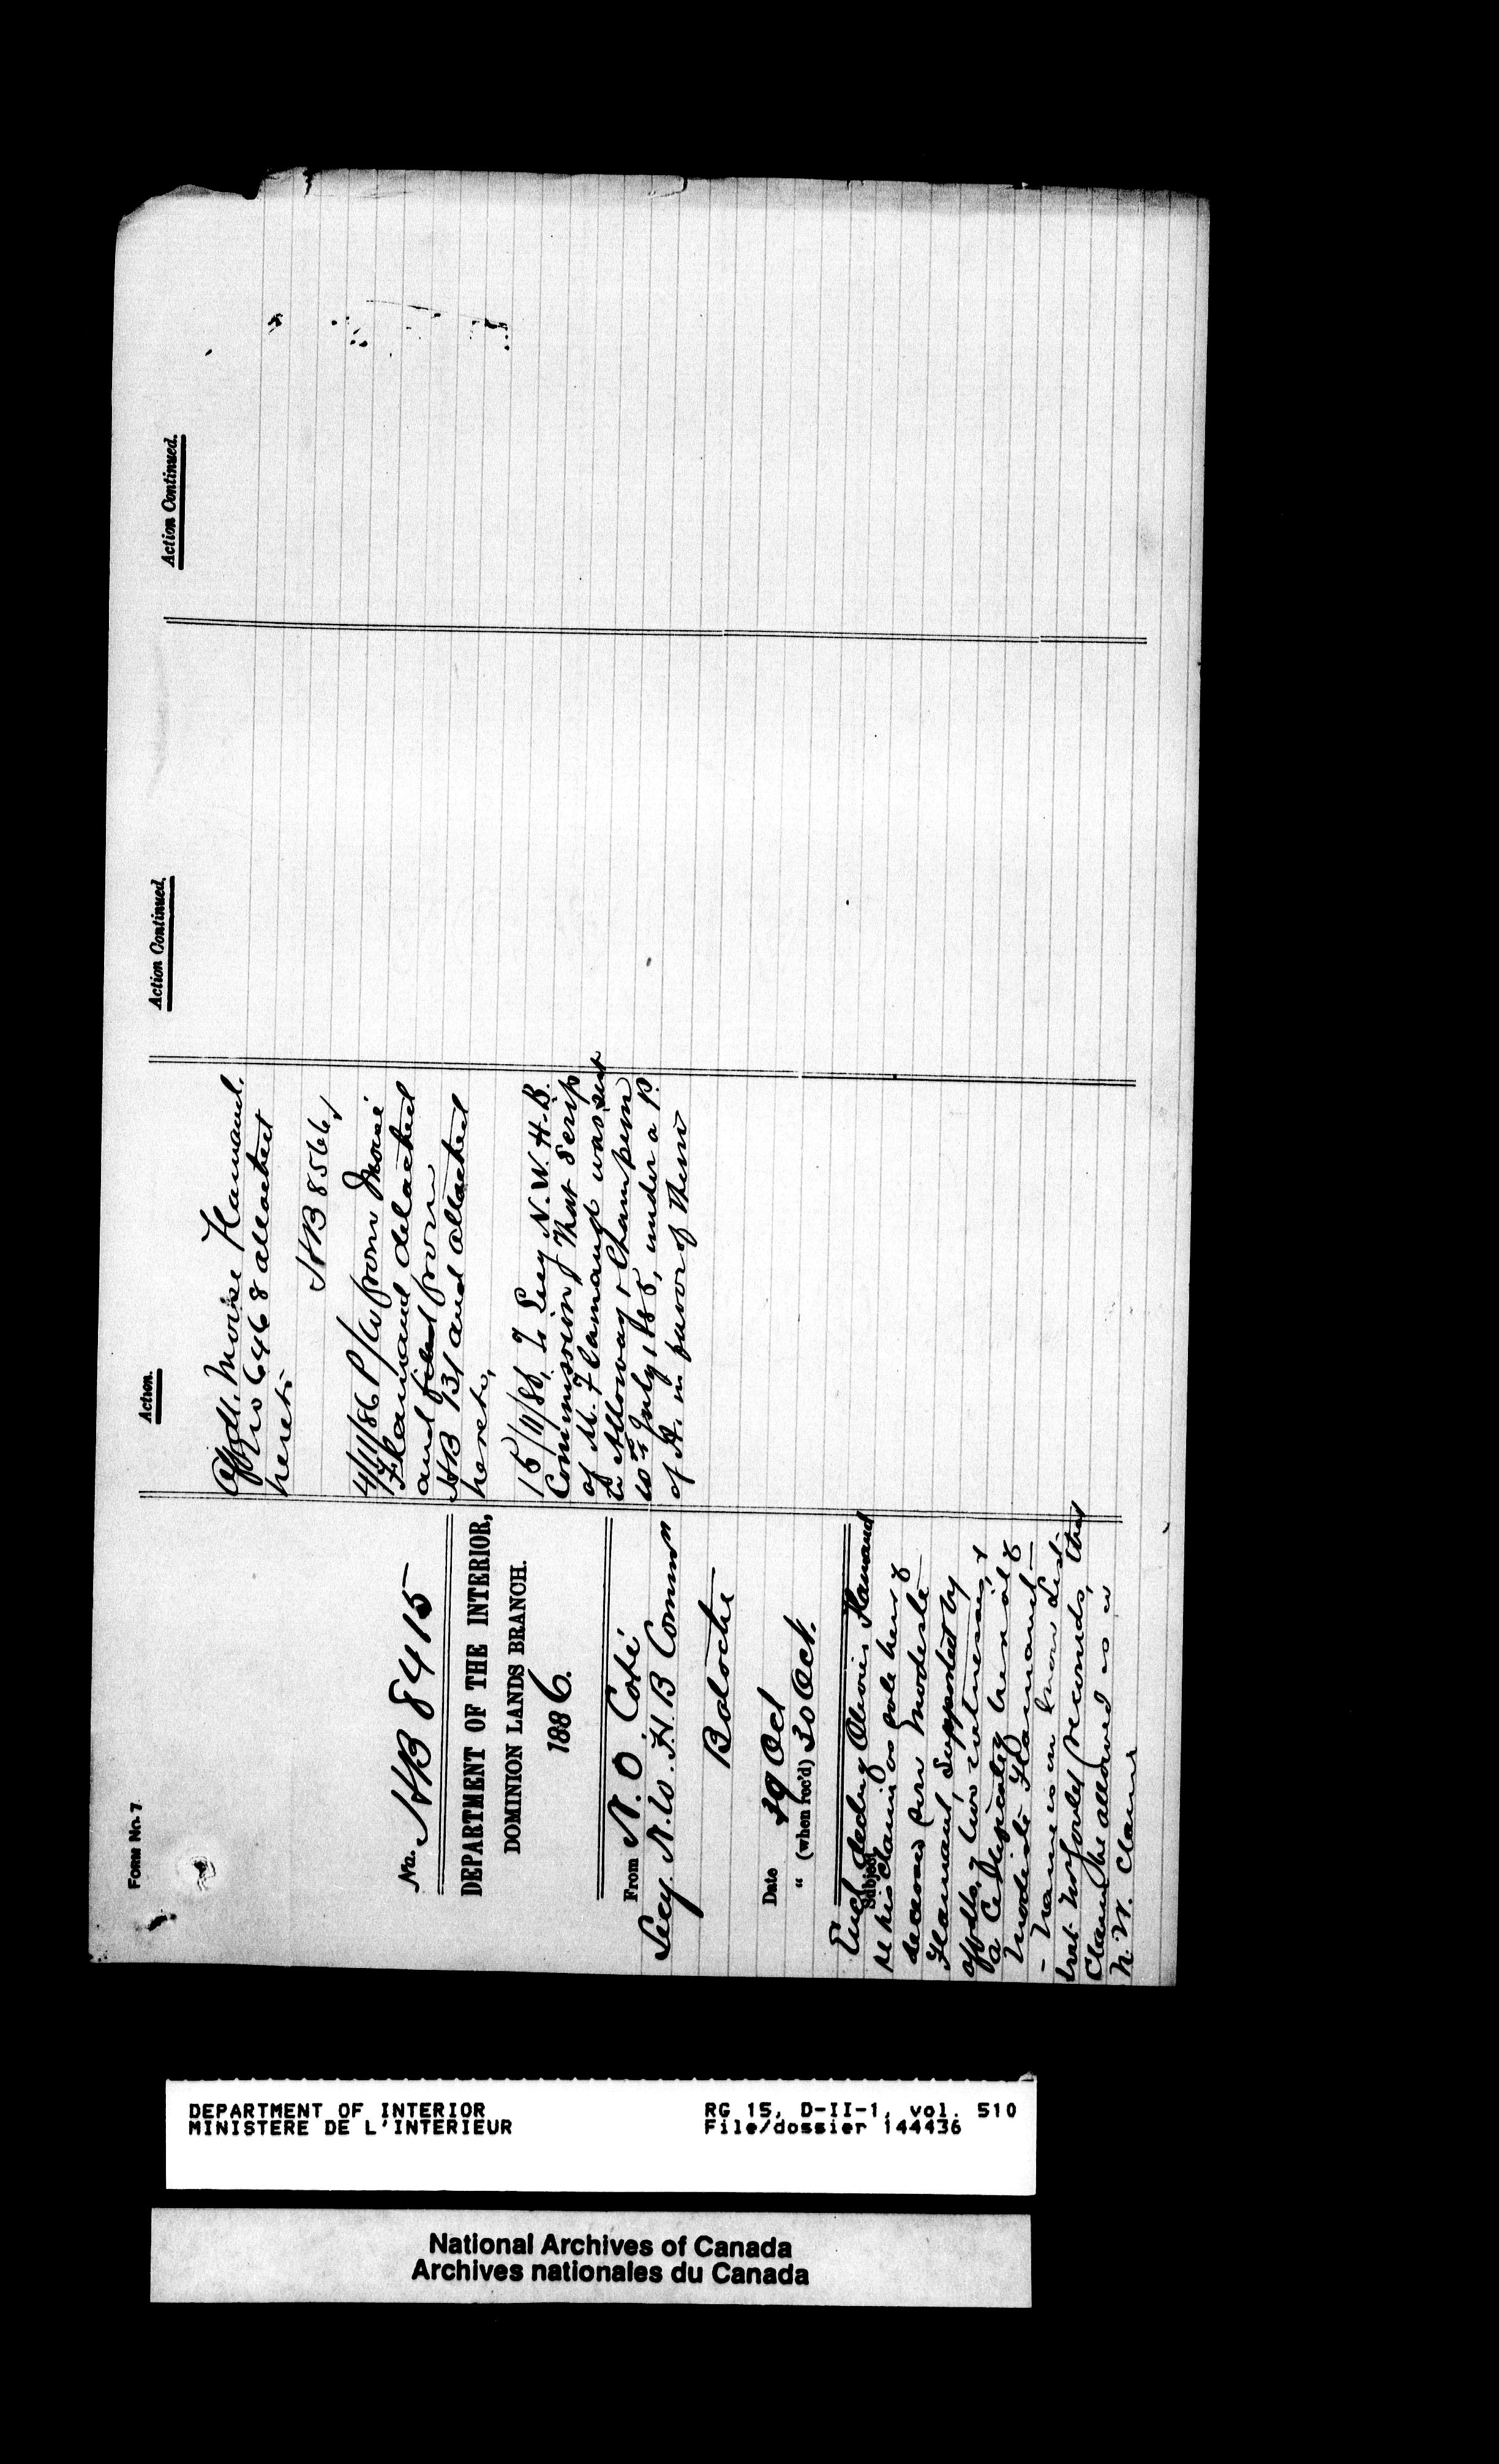 FORM No. 7
No. HB 8415
DEPARTMENT OF THE INTERIOR,
DOMINION LANDS BRANCH.
1886.
From N. O. Coté
Secy. N.W. H. B Commn
Batoche
Date 29 Oct
" (when rec'd) 30 Oct.
Subject
Encl decln of Moise Flamand
re his claim as sole heir of
deceased Modeste
Flamand, supported by
affdts. of two witnesses, &
a Certificate of burial of
Modeste Flamand
- Name is in
but records, that
Claim be allowed as a
N. W. Claim
Action.
Affdt. Moise Flamand.
No 6468 attached
hereto
HB 8566
4/11/86 P/A from Moise
Flamand detached
and filed from
HB 731 and attached
hereto.
15/11/86, To Secy N.W. H.B.
Commission, that Scrip
of M. Flamand was sent
to Alloway & Champion
10th July, 1885, under a P.
of A. in favor of them
Action Continued.
Action Continued.
DEPARTMENT OF INTERIOR
MINISTERE DE L'INTERIEUR
RG 15, D-II-1, vol. 510
File/dossier 144436
National Archives of Canada
Archives nationales du Canada